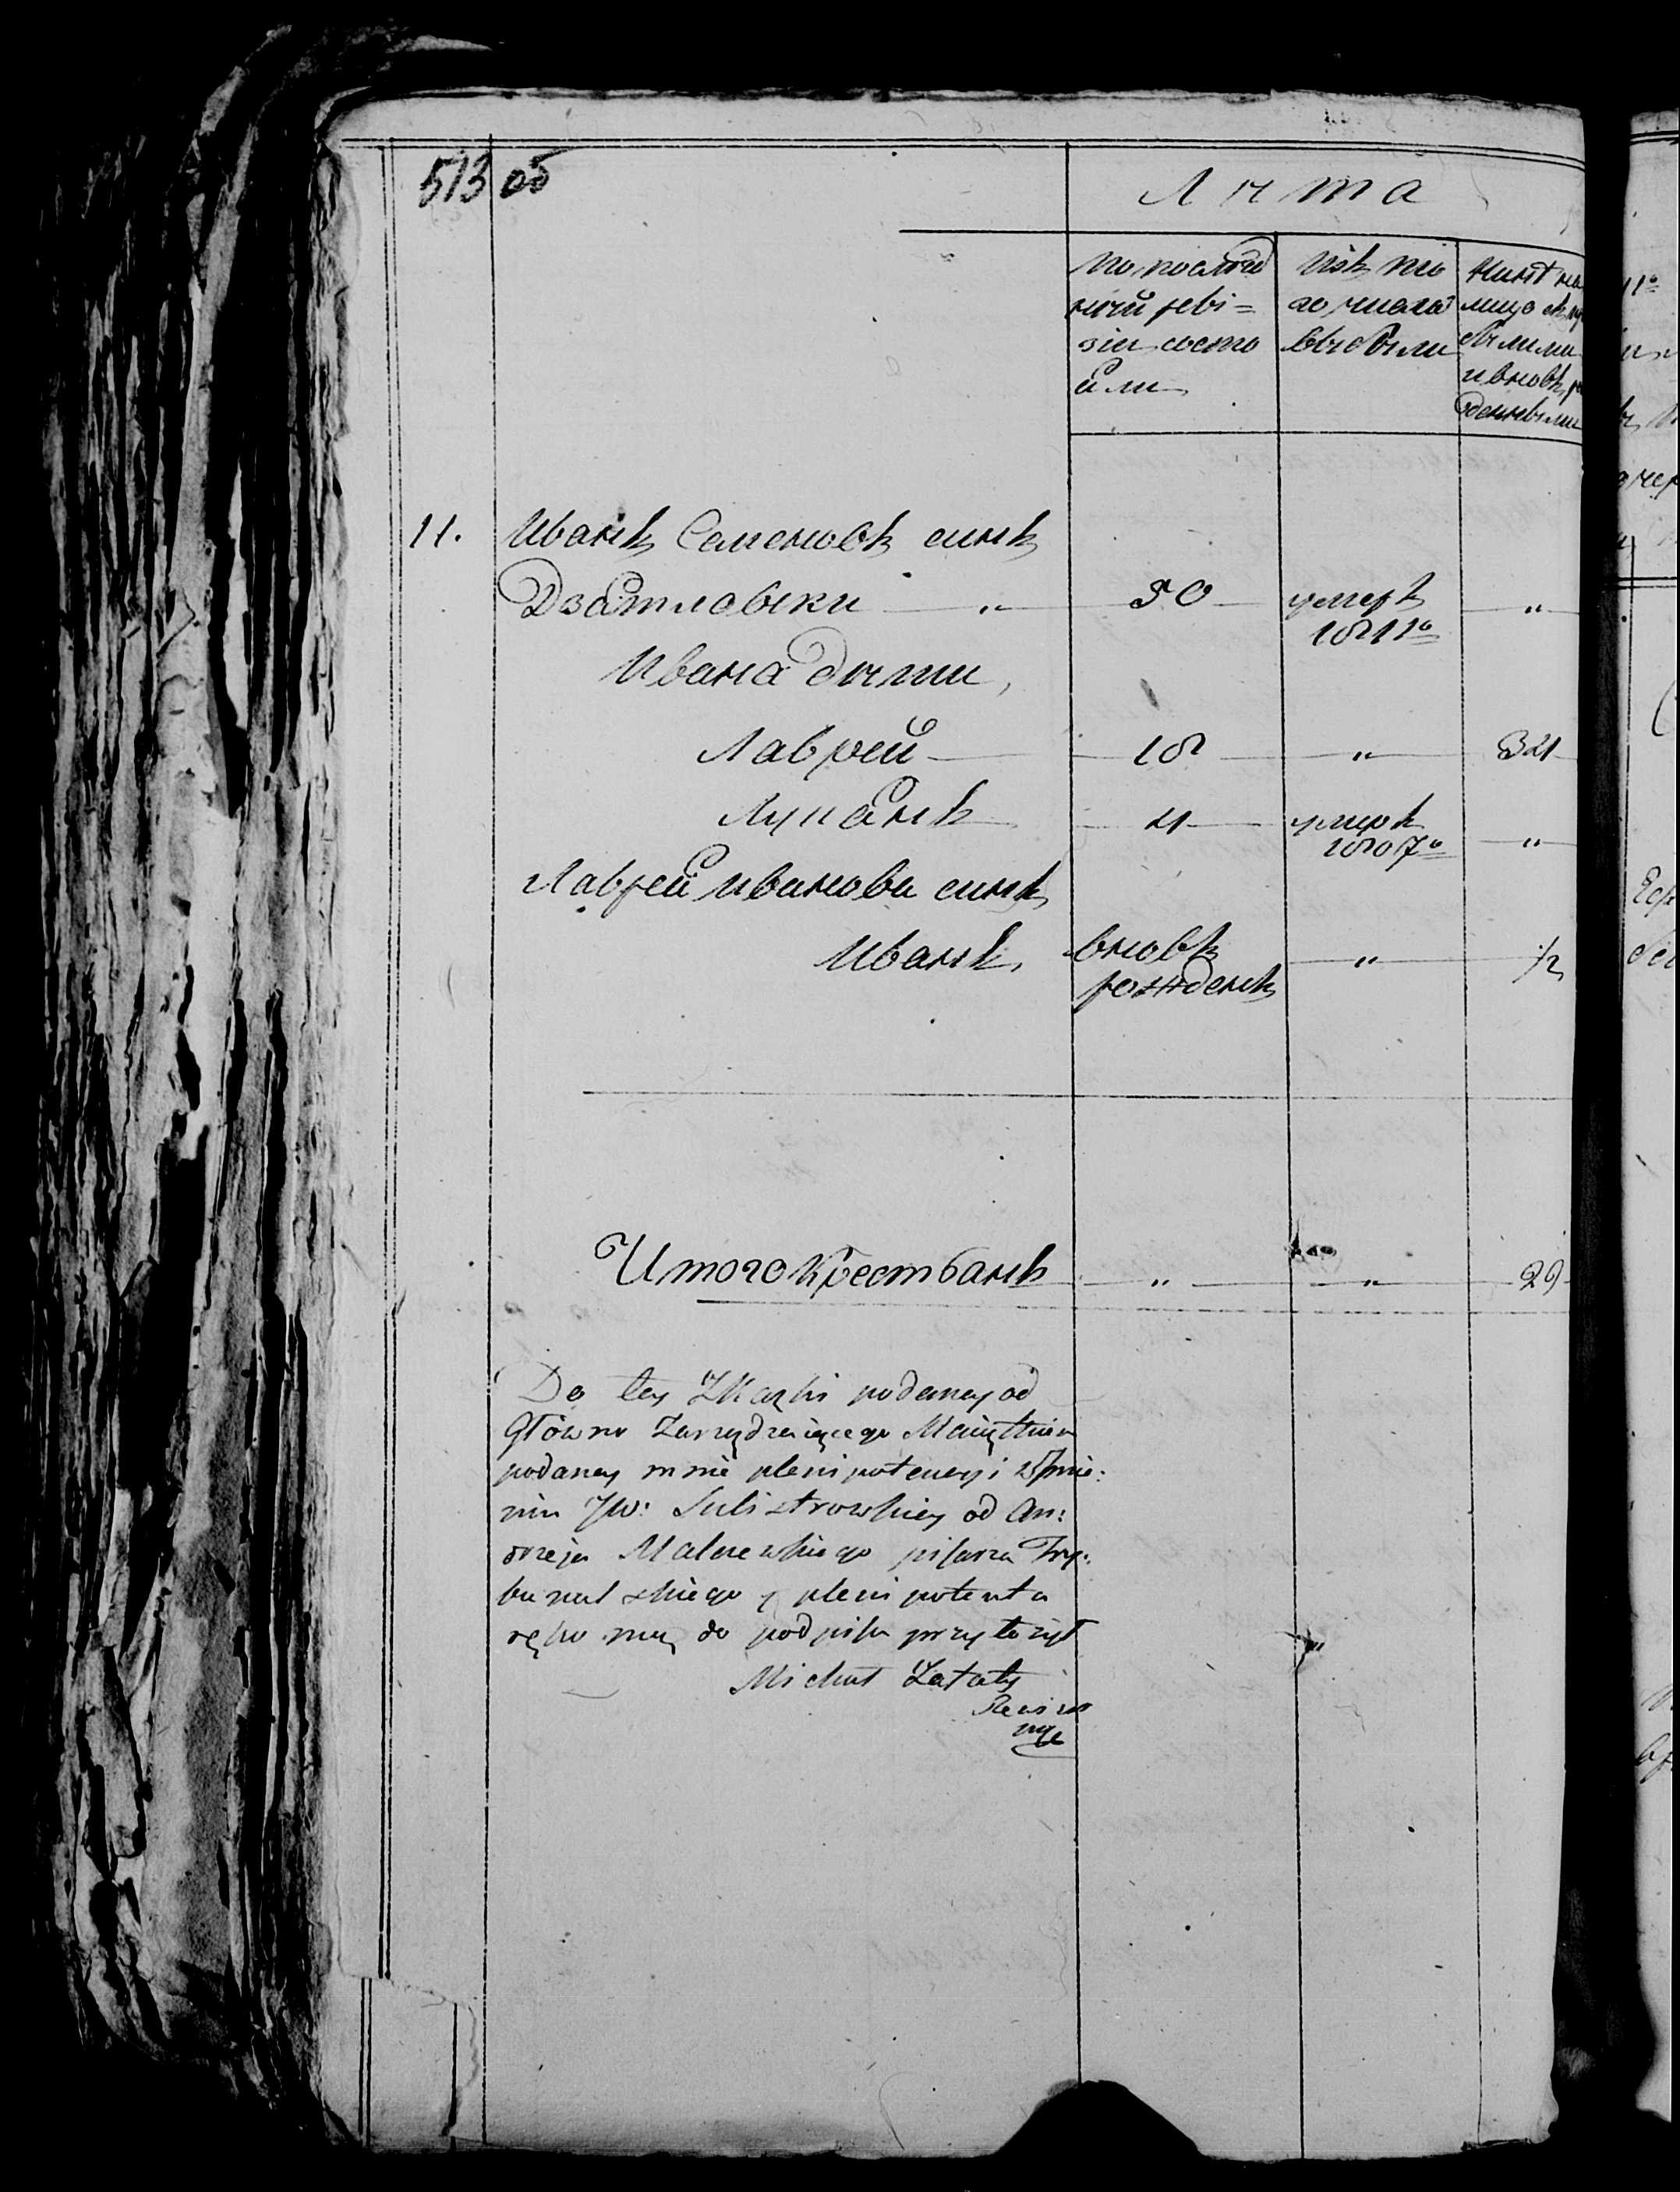 513 об
Лѣта
по послѣд
ней реви=
зіи состо
яли
изъ то
го числа
выбыли
нинѣ на
лицо съ
былими
и вновь
денными
11. Иванъ Семеновъ синъ
Дзятловски " 50 умеръ "
1811го
Ивана дѣти,
Лаврей 18 " 34
Лукянъ 4 умеръ "
1807го
Лаврей иванова синъ
Иванъ вновь " 1/2
рожденъ
Итого крестьянъ " " 29
Do tey Skazki podaney od
Główno Zarządzaiącego Maiątkiem
podaney mnie plenipotencyi w Jmie:
niu JW: Sulistrowskiey od An:
drzeja Malewskiego pisarza Try:
bunalskiego y plenipotenta
rękę mą do podpisu przyłożył
Michał